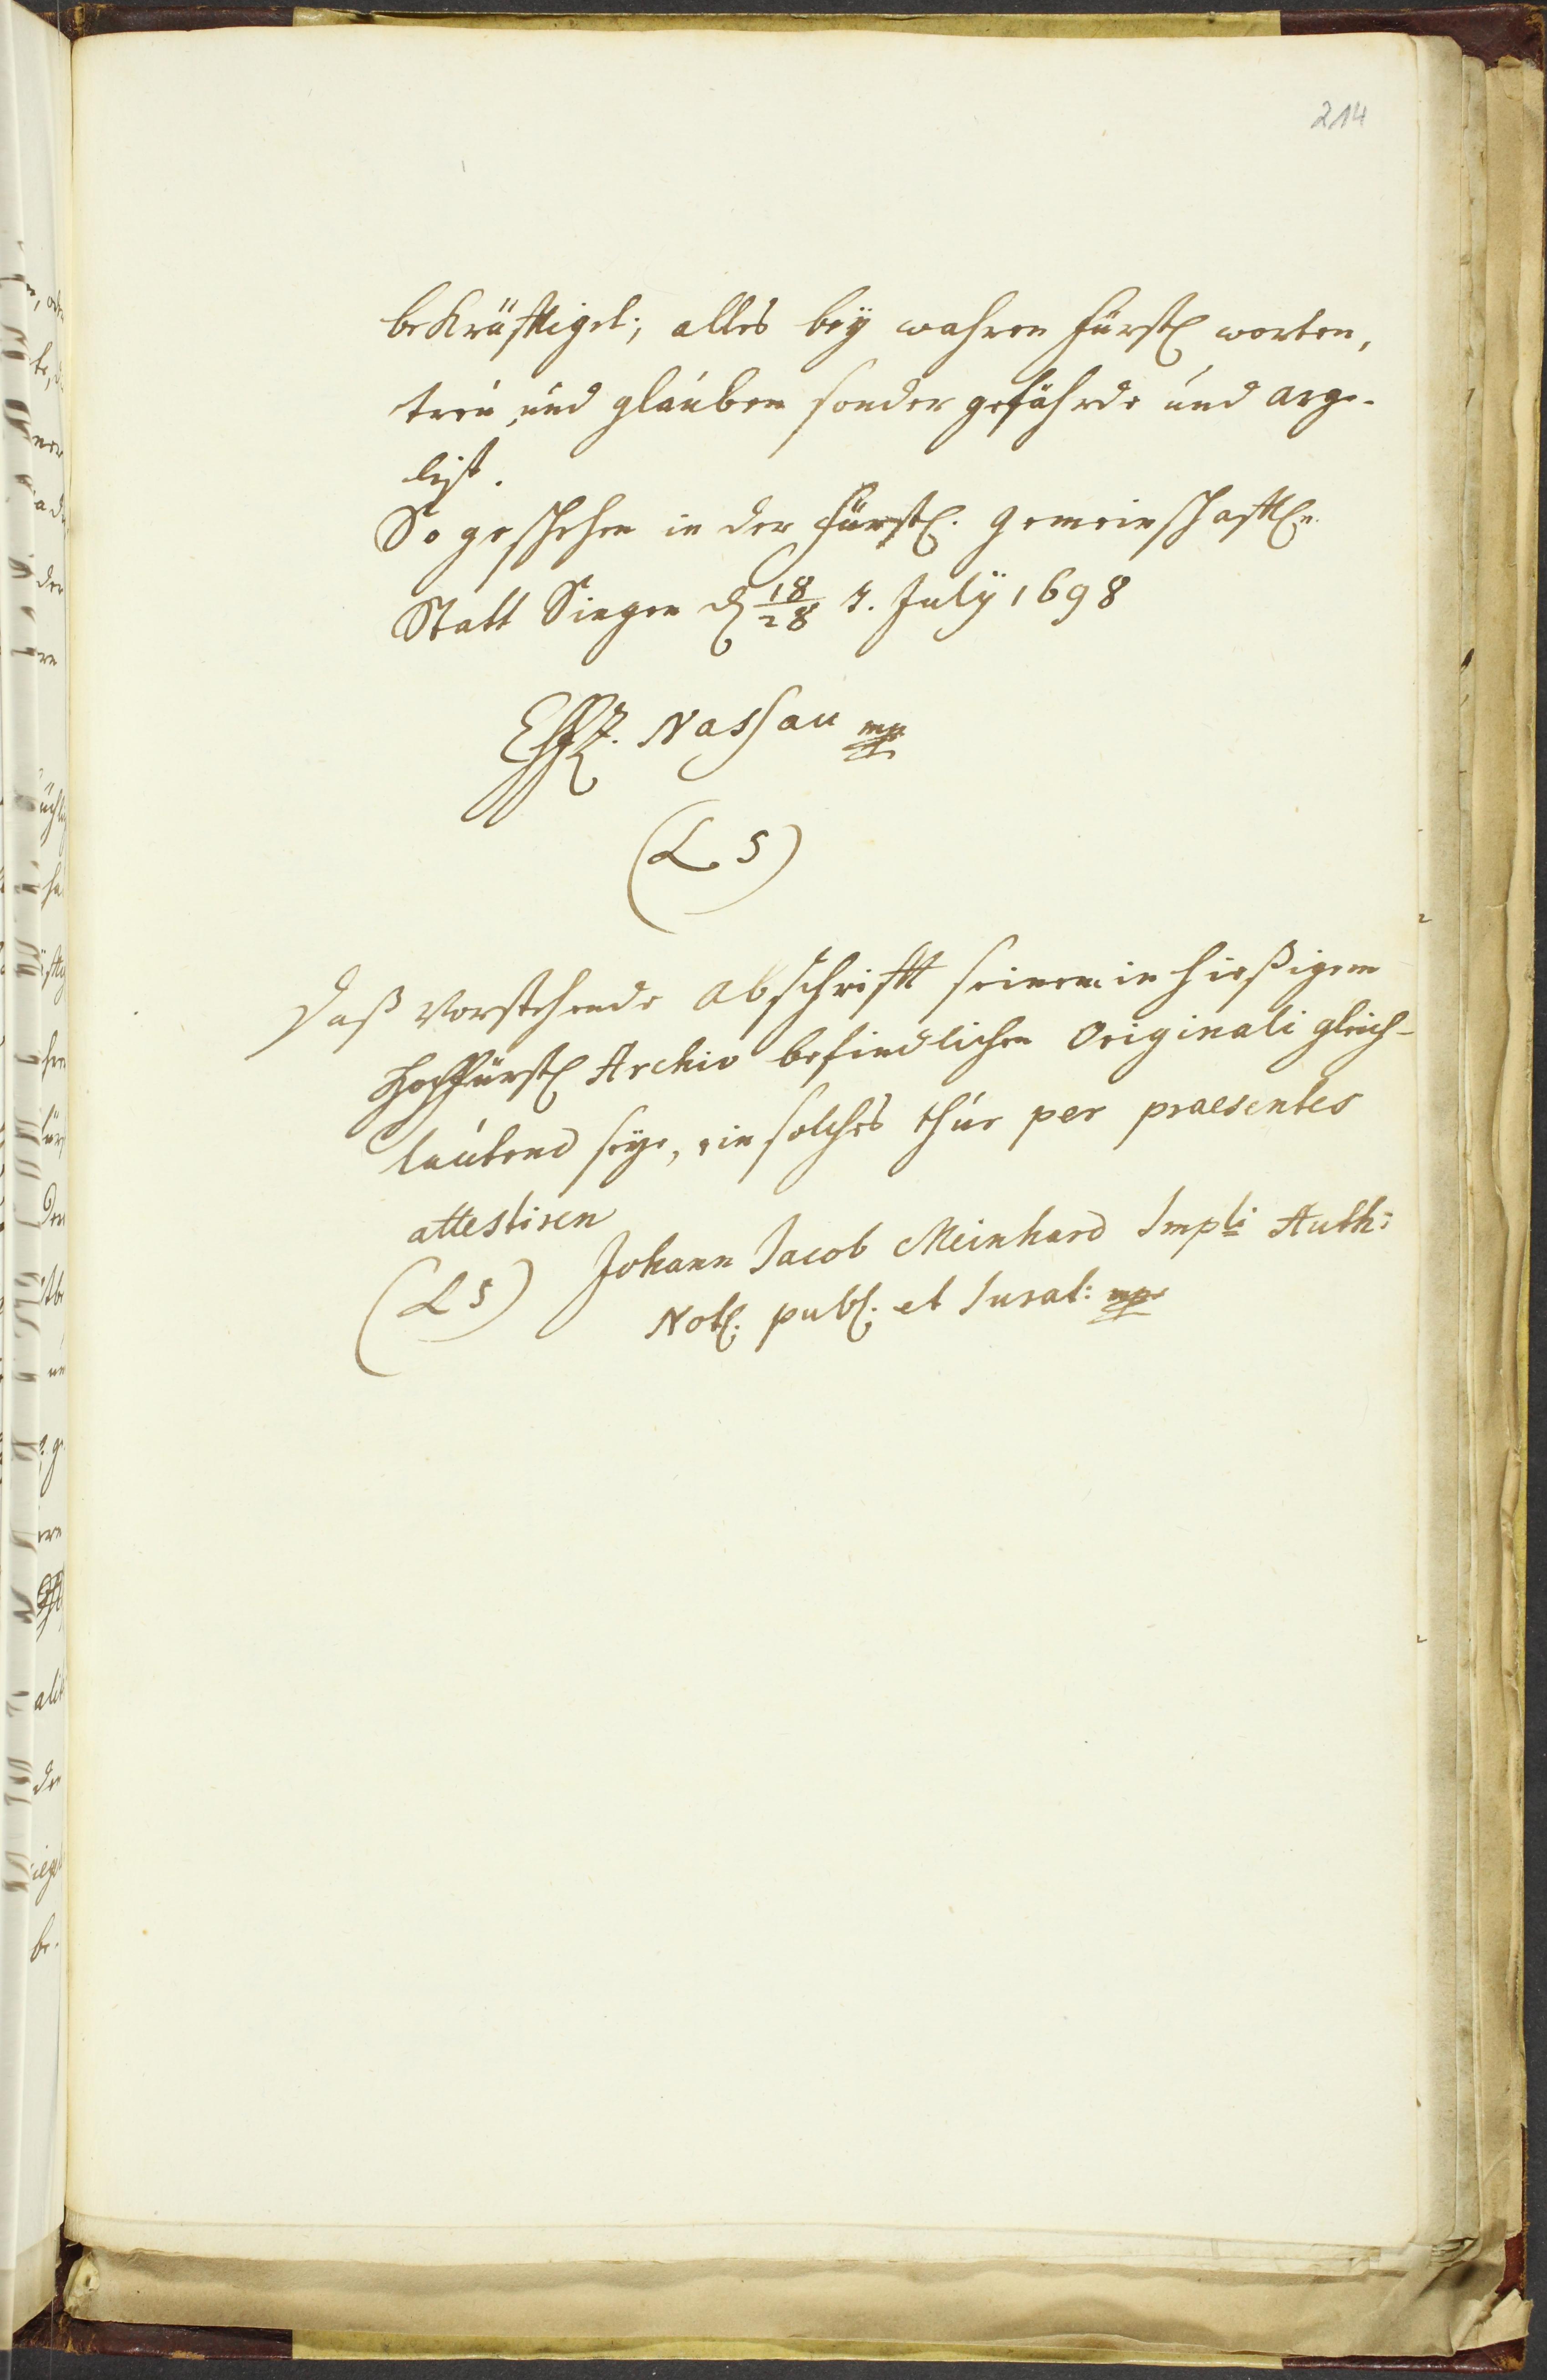 214
bekräfftiget; alles beÿ wahren fürstl worten,
treü, und glauben sonder gefährde und arge-
list.
So geschehen in der fürstl. gemeinschafftln.
Statt Siegen d 18/28 t. Julÿ 1698
Nassau mp
(L S)
Daß vorstehende Abschrifft seinem in hießigem
Hochfürstl Archiv befindlichen Originali gleich-
lautend seÿe, ein solches thue per praesentes
attestiren
(L S) Johann Jacob Meinhard Impli Auth:
Not. publ. et Jurat: mp